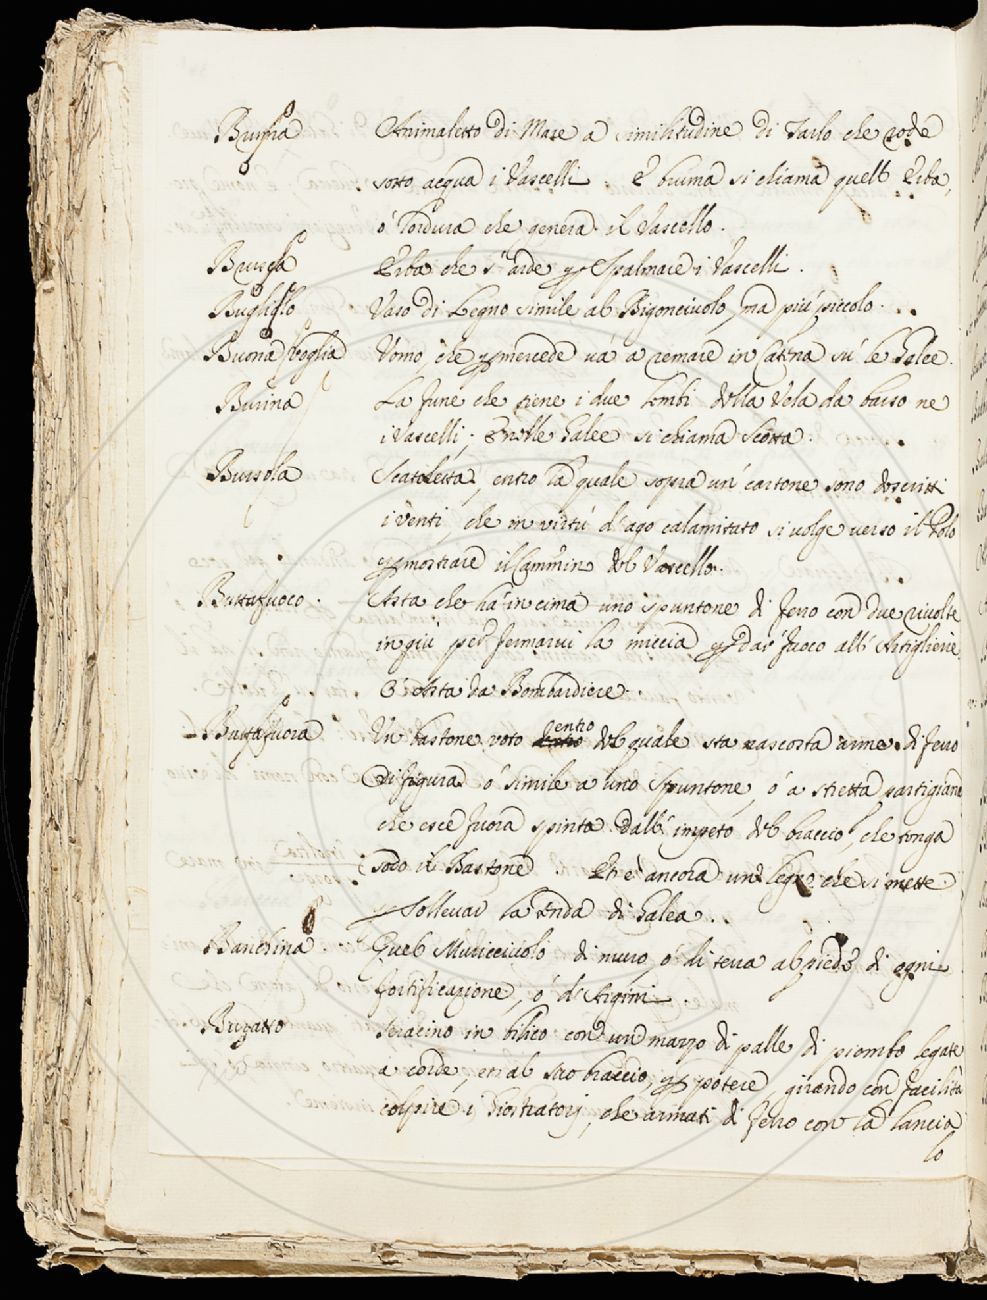 Bruma Animaletto di Mare a similitudine di Tarlo che rode
sotto acqua i Vascelli. E bruma si chiama quell' Erba,
ó lordura che genera il Vascello.
Brusca Erba che s'arde p Spalmare i Vascelli.
Bugliolo Vaso di Legno simile al Bigonciuolo, ma più piccolo.
Buona voglia Uomo, che p mercede và a remare in Catena sù le Galee.
Burina La fune che tiene i due lembi della Vela da basso ne
i Vascelli; e nelle Galee si chiama Scotta.
Bussola Scatoletta, entro la quale sopra un' cartone sono descritti
i venti, che in virtù d'ago calamitato si volge verso il Polo
p mostrare il Cammin del Vascello.
Buttafuoco. Asta che ha' in cima uno spuntone di ferro con due rivolte
in giù per fermarvi la miccia p dar' fuoco all' Artiglierie.
O' Asta da Bombardiere.
Buttafuora Un bastone voto entro del quale sta nascosta arme di ferro
di figura ó simile a uno Spuntone, ó a stretta partigiana
che esce fuora spinta dall' impeto del braccio, che tenga
sodo il Bastone. Et è ancora un legno che si mette
p sollevar la tenda di Galea.
Banchina Quel Muricciuolo di muro, ó di terra al piede di ogni
fortificazione, ó d'Argini.
Buratto Saracino in bilico con un mazzo di palle di piombo legate
a corde, in al suo braccio, p potere, girando con facilità
colpire i Giostratorj, che armati di ferro con la lancia
lo